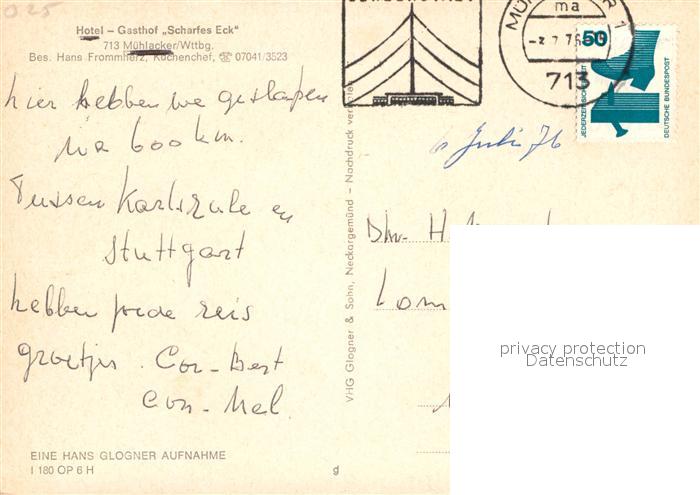 025
Hotel – Gasthof „Scharfes Eck"
713 Mühlacker/Wttbg.
Bes. Hans Frommherz, Küchenchef, ☏ 07041/3523
hier hebben we geslapen
na 600 km.
Tussen Karlsrule en
Stuttgart
hebben goede reis
groetjes. Cor – Bert
Con – Mel.
EINE HANS GLOGNER AUFNAHME
I 180 OP 6 H
g
VHG Glogner & Sohn, Neckargemünd – Nachdruck
ma
-2.7.76
713
50
JEDERZEIT SICHERHEIT
DEUTSCHE BUNDESPOST
Juli 76
Dhr. H.
privacy protection
Datenschutz